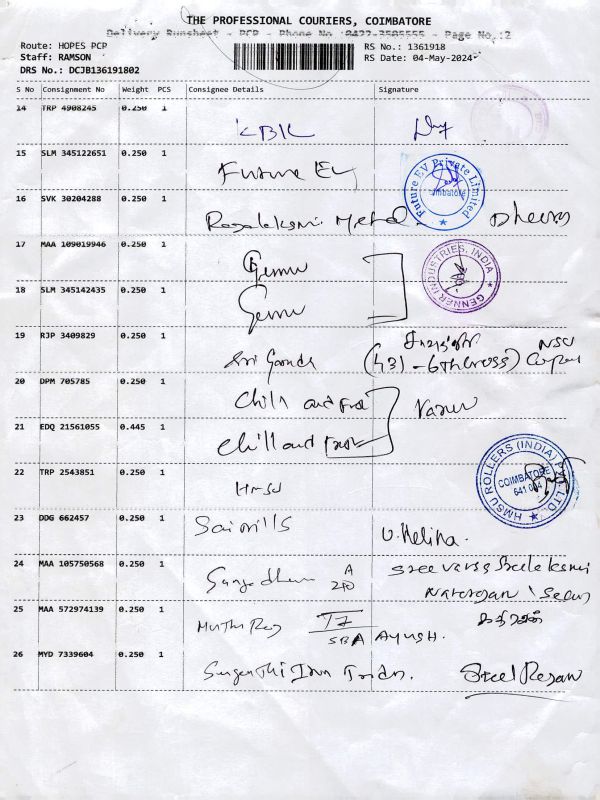 THE PROFESSIONAL COURIERS, COIMBATORE
Delivery Runsheet - PCP - Phone No :0422-3505555 - Page No.:2
Route: HOPES PCP
Staff: RAMSON
DRS No.: DCJB136191802
RS No.: 1361918
RS Date: 04-May-2024
S No Consignment No Weight PCS Consignee Details Signature
14 TRP 4908245 0.250 1 KBK
15 SLM 345122651 0.250 1 Future EV
Future EV Private Limited
Coimbatore
16 SVK 30204288 0.250 1 Dheera
17 MAA 109019946 0.250 1 Gennr
GENNER INDUSTRIES, INDIA
18 SLM 345142435 0.250 1 Gennr
19 RJP 3409829 0.250 1 Sri (431 - 6th Cross)
20 DPM 705785 0.250 1 Chill and Varun
21 EDQ 21561055 0.445 1 Chill and
22 TRP 2543851 0.250 1 HMSU
HMSU ROLLERS (INDIA) PVT. LTD.
COIMBATORE
641 004
23 DDG 662457 0.250 1 Saimills U. Helina.
24 MAA 105750568 0.250 1 A 210 Sree Varsg
25 MAA 572974139 0.250 1 Muthu Raj T7
SBA AYUSH.
26 MYD 7339604 0.250 1 Suganthi Steel Rejan